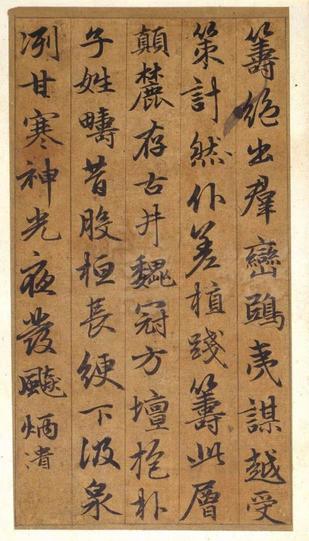 籌絕出羣巒鴟夷謀越受
策計然仆差植踐籌此層
顛麓存古井巍冠方壇抱朴
子姓疇昔股桓長綆下汲泉
冽甘寒神光夜發飈炳潰